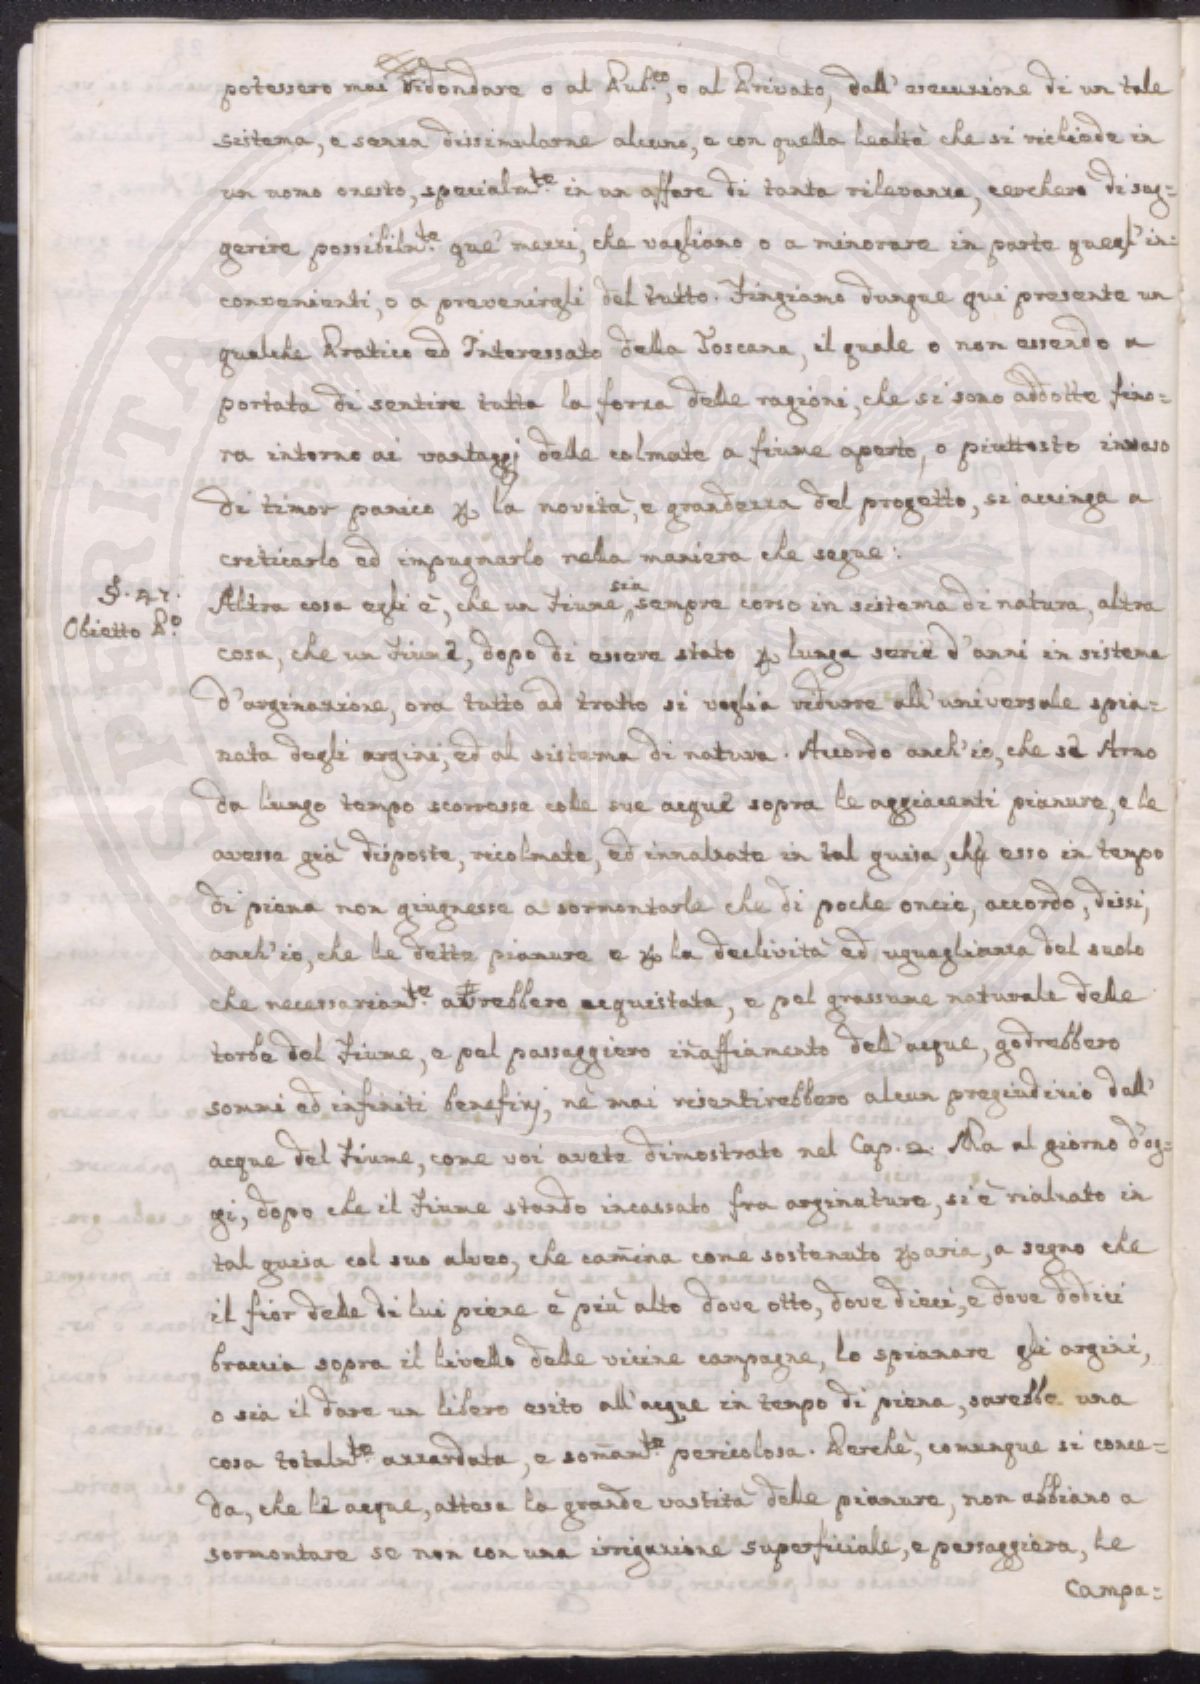 potessero mai ridondare o al Pub.co, o al Privato, dall' esecuzione di un tale
sistema, e senza dissimularne alcuno, e con quella lealtà che si richiede in
un uomo onesto, specialm.te in un affare di tanta rilevanza, cercherò di sug=
gerire possibilm.te que' mezzi, che vagliano o a minorare in parte quegl' in=
convenienti, o a prevenirgli del tutto. Fingiamo dunque qui presente un
qualche Pratico ed Interessato della Toscana, il quale o non essendo a
portata di sentire tutta la forza delle ragioni, che si sono addotte fino=
ra intorno ai vantaggi delle colmate a fiume aperto, o piuttosto invaso
di timor panico p la novità, e grandezza del progetto, si accinga a
creticarlo ed impugnarlo nella maniera che segue:
§. 47.
Obietto P.o
Altra cosa egli è, che un Fiume sia sempre corso in sistema di natura, altra
cosa, che un Fiume, dopo di essere stato p lunga serie d'anni in sistema
d'arginazione, ora tutto ad tratto si voglia ridurre all'universale spia=
nata degli argini, ed al sistema di natura. Accordo anch'io, che se Arno
da lungo tempo scorresse colle sue acque sopra le aggiacenti pianure, e le
avesse già disposte, ricolmate, ed innalzate in tal guisa, che esso in tempo
di piena non giugnesse a sormontarle che di poche oncie, accordo, dissi,
anch'io, che le dette pianure e p la declività ed uguaglianza del suolo
che necessariam.te avrebbero acquistata, e pel grassume naturale delle
torbe del Fiume, e pel passaggiero inaffiamento dell'acque, godrebbero
sommi ed infiniti benefizj, nè mai risentirebbero alcun pregiudizio dall'
acque del Fiume, come voi avete dimostrato nel Cap. 2. Ma al giorno d'og=
gi, dopo che il Fiume stando incassato fra arginature, si è rialzato in
tal guisa col suo alveo, che cam̃ina come sostenuto p aria, a segno che
il fior delle di lui piene è più alto dove otto, dove dieci, e dove dodici
braccia sopra il livello delle vicine campagne, lo spianare gli argini,
o sia il dare un libero esito all'acque in tempo di piena, sarebbe una
cosa totalm.te azzardata, e som̃am.te pericolosa. Perchè, comunque si conce=
da, che le acque, attesa la grande vastità delle pianure, non abbiano a
sormontare se non con una irrigazione superficiale, e passaggiera, le
Campa=